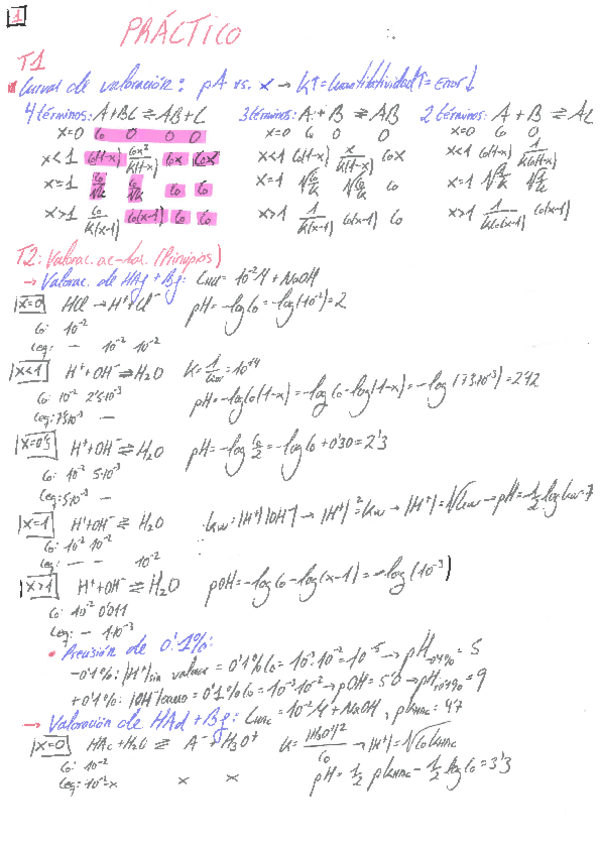 1
PRÁCTICO
T1
Curvas de valoración: pA vs. x → K↑ = Cuantitatividad↑ = Error↓
4 términos: A+BC ⇌ AB+C
x=0 Co 0 0 0
x<1 Co(1-x) Cox²/K(1-x) Cox Cox
x=1 Co/√K Co/√K Co Co
x>1 Co/K(x-1) Co(x-1) Co Co
3 términos: A + B ⇌ AB
x=0 Co 0 0
x<1 Co(1-x) x/K(1-x) Cox
x=1 √Co/K √Co/K Co
x>1 1/K(x-1) Co(x-1) Co
2 términos: A + B ⇌ AC
x=0 Co 0
x<1 Co(1-x) 1/KCo(1-x)
x=1 √1/K √1/K
x>1 1/KCo(x-1) Co(x-1)
T2: Valorac. ac-bas. (Principios)
→ Valorac. de HAg + Bg: CHCl = 10⁻² M + NaOH
|x=0| HCl → H⁺+Cl⁻ pH=-logCo=-log(10⁻²)=2
Co: 10⁻²
Ceq: — 10⁻² 10⁻²
|x<1| H⁺+OH⁻ ⇌ H₂O K=1/Kw=10¹⁴
Co: 10⁻² 2'5·10⁻³ pH=-logCo(1-x)=-logCo-log(1-x)=-log(7'5·10⁻³)=2'12
Ceq: 7'5·10⁻³ —
|x=0'5| H⁺+OH⁻ ⇌ H₂O pH=-log Co/2=-logCo+0'30=2'3
Co: 10⁻² 5·10⁻³
Ceq: 5·10⁻³ —
|x=1| H⁺+OH⁻ ⇌ H₂O Kw=|H⁺||OH⁻| → |H⁺|²=Kw → |H⁺|=√Kw → pH=-1/2 logKw=7
Co: 10⁻² 10⁻²
Ceq: — — 10⁻²
|x>1| H⁺+OH⁻ ⇌ H₂O pOH=-logCo-log(x-1)=-log(10⁻³)
Co: 10⁻² 0'011
Ceq: — 1·10⁻³
• Precisión de 0'1%:
-0'1%: |H⁺|sin valorar = 0'1%Co=10⁻³·10⁻²=10⁻⁵ → pH-0'1% = 5
+0'1%: |OH⁻|exceso = 0'1%Co=10⁻³·10⁻² → pOH=5'0 → pH+0'1% = 9
→ Valoración de HAd + Bg: CHAc = 10⁻² M + NaOH, pKHAc = 4'7
|x=0| HAc+H₂O ⇌ A⁻+H₃O⁺ K=|H₃O⁺|²/Co → |H⁺|=√CoKHAc
Co: 10⁻²
Ceq: 10⁻²-x x x pH=1/2 pKHAc - 1/2 logCo=3'3